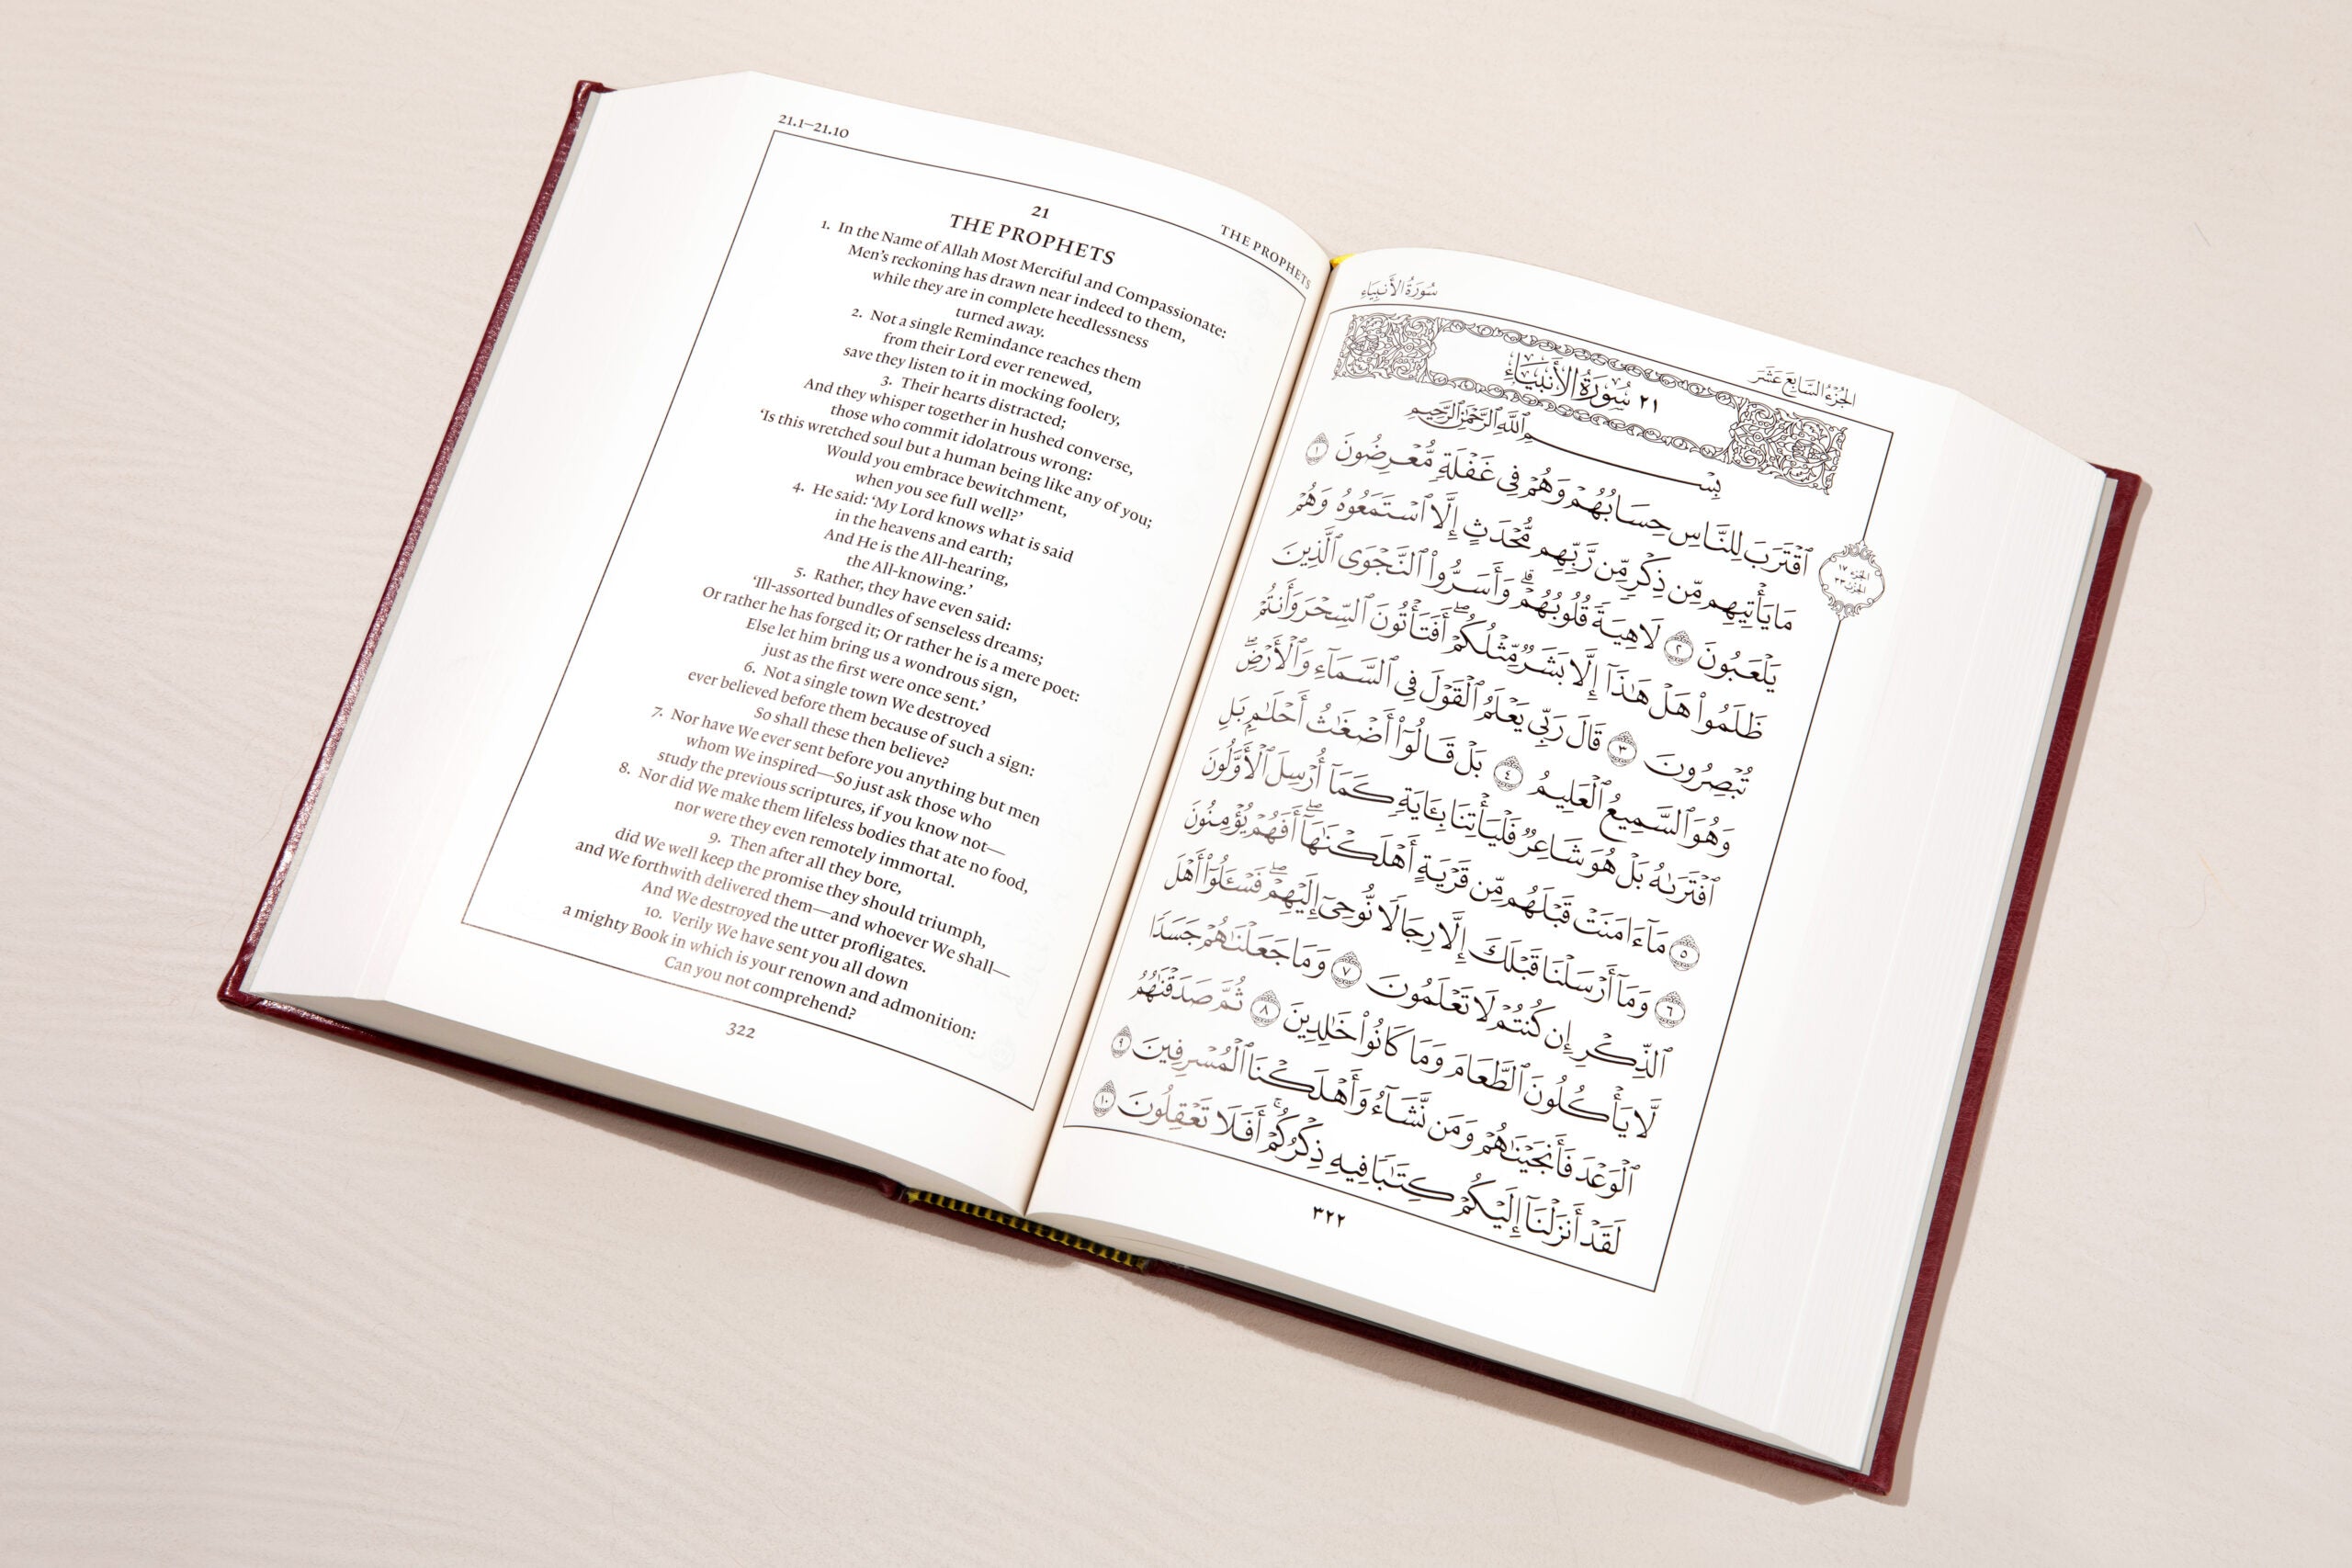 21.1–21.10
THE PROPHETS
21
THE PROPHETS
1. In the Name of Allah Most Merciful and Compassionate:
Men's reckoning has drawn near indeed to them,
while they are in complete heedlessness
turned away.
2. Not a single Remindance reaches them
from their Lord ever renewed,
save they listen to it in mocking foolery,
3. Their hearts distracted;
And they whisper together in hushed converse,
those who commit idolatrous wrong:
'Is this wretched soul but a human being like any of you;
Would you embrace bewitchment,
when you see full well?'
4. He said: 'My Lord knows what is said
in the heavens and earth;
And He is the All-hearing,
the All-knowing.'
5. Rather, they have even said:
'Ill-assorted bundles of senseless dreams;
Or rather he has forged it; Or rather he is a mere poet:
Else let him bring us a wondrous sign,
just as the first were once sent.'
6. Not a single town We destroyed
ever believed before them because of such a sign:
So shall these then believe?
7. Nor have We ever sent before you anything but men
whom We inspired—So just ask those who
study the previous scriptures, if you know not—
8. Nor did We make them lifeless bodies that ate no food,
nor were they even remotely immortal.
9. Then after all they bore,
did We well keep the promise they should triumph,
and We forthwith delivered them—and whoever We shall—
And We destroyed the utter profligates.
10. Verily We have sent you all down
a mighty Book in which is your renown and admonition:
Can you not comprehend?
322
سُورَةُ الأَنبِيَاءِ
الجُزْءُ السَّابِعَ عَشَرَ
٢١ سُورَةُ الأَنبِيَاءِ
بِسْمِ ٱللَّهِ ٱلرَّحْمَٰنِ ٱلرَّحِيمِ
ٱقْتَرَبَ لِلنَّاسِ حِسَابُهُمْ وَهُمْ فِى غَفْلَةٍ مُّعْرِضُونَ ١
مَا يَأْتِيهِم مِّن ذِكْرٍ مِّن رَّبِّهِم مُّحْدَثٍ إِلَّا ٱسْتَمَعُوهُ وَهُمْ
يَلْعَبُونَ ٢ لَاهِيَةً قُلُوبُهُمْ ۗ وَأَسَرُّوا۟ ٱلنَّجْوَى ٱلَّذِينَ
ظَلَمُوا۟ هَلْ هَٰذَآ إِلَّا بَشَرٌ مِّثْلُكُمْ ۖ أَفَتَأْتُونَ ٱلسِّحْرَ وَأَنتُمْ
تُبْصِرُونَ ٣ قَالَ رَبِّى يَعْلَمُ ٱلْقَوْلَ فِى ٱلسَّمَآءِ وَٱلْأَرْضِ ۖ
وَهُوَ ٱلسَّمِيعُ ٱلْعَلِيمُ ٤ بَلْ قَالُوٓا۟ أَضْغَٰثُ أَحْلَٰمٍۭ بَلِ
ٱفْتَرَىٰهُ بَلْ هُوَ شَاعِرٌ فَلْيَأْتِنَا بِـَٔايَةٍ كَمَآ أُرْسِلَ ٱلْأَوَّلُونَ
٥ مَآ ءَامَنَتْ قَبْلَهُم مِّن قَرْيَةٍ أَهْلَكْنَٰهَآ ۖ أَفَهُمْ يُؤْمِنُونَ
٦ وَمَآ أَرْسَلْنَا قَبْلَكَ إِلَّا رِجَالًا نُّوحِىٓ إِلَيْهِمْ ۖ فَسْـَٔلُوٓا۟ أَهْلَ
ٱلذِّكْرِ إِن كُنتُمْ لَا تَعْلَمُونَ ٧ وَمَا جَعَلْنَٰهُمْ جَسَدًا
لَّا يَأْكُلُونَ ٱلطَّعَامَ وَمَا كَانُوا۟ خَٰلِدِينَ ٨ ثُمَّ صَدَقْنَٰهُمُ
ٱلْوَعْدَ فَأَنجَيْنَٰهُمْ وَمَن نَّشَآءُ وَأَهْلَكْنَا ٱلْمُسْرِفِينَ ٩
لَقَدْ أَنزَلْنَآ إِلَيْكُمْ كِتَٰبًا فِيهِ ذِكْرُكُمْ ۖ أَفَلَا تَعْقِلُونَ ١٠
الجزء ١٧
الحزب ٣٣
٣٢٢